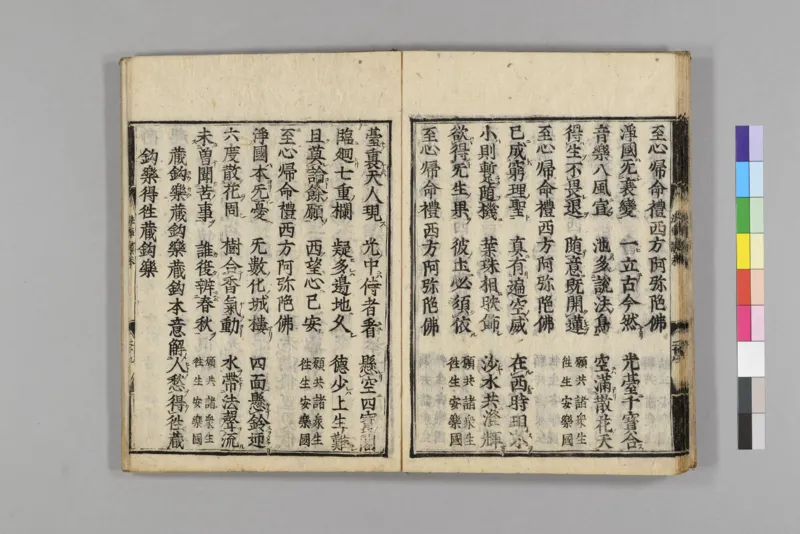 至心帰命禮西方阿弥陁佛
淨國无衰變 一立古今然 光臺千寶合
音樂八風宣 池多說法鳥 空滿散花天
得生不畏退 随意既開蓮 願共諸衆生
往生安樂國
至心帰命禮西方阿弥陁佛
已成窮理聖 真有遍空威 在西時現
小則暫随機 葉珠相映飾 沙水共澄輝
欲得无生果 彼土必須依 願共諸衆生
往生安樂國
至心帰命禮西方阿弥陁佛
臺裏天人現 光中侍者看 懸空四寶閣
臨廻七重欄 疑多邊地久 德少上生難
且莫論餘願 西望心已安 願共諸衆生
往生安樂國
至心帰命禮西方阿弥陁佛
淨國本无憂 无數化城樓 四面懸鈴通
六度散花同 樹合香氣動 水帶法聲流
未曽聞苦事 誰復辨春秋 願共諸衆生
往生安樂國
蔵鈎樂蔵鈎樂蔵鈎本意解人愁得往蔵
鈎樂得往蔵鈎樂